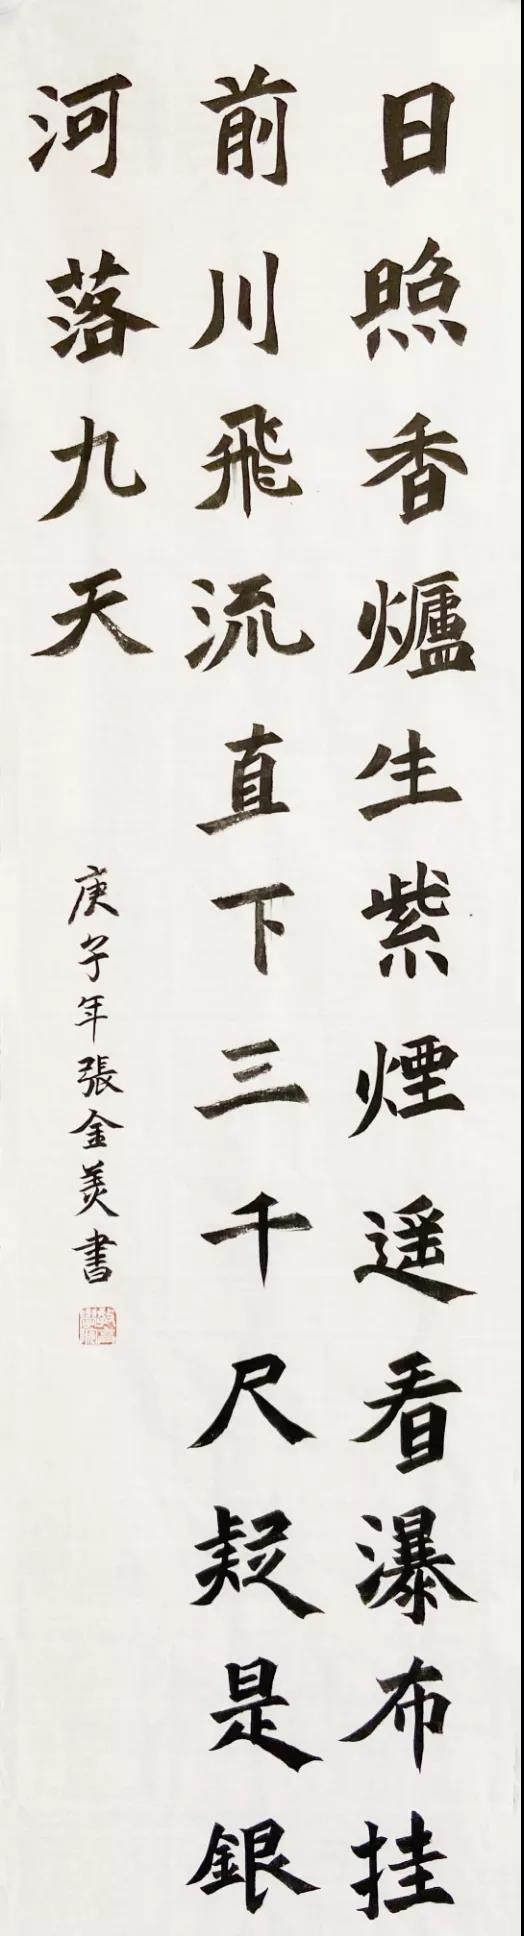 日照香爐生紫煙遥看瀑布挂
前川飛流直下三千尺疑是銀
河落九天
庚子年張金美書